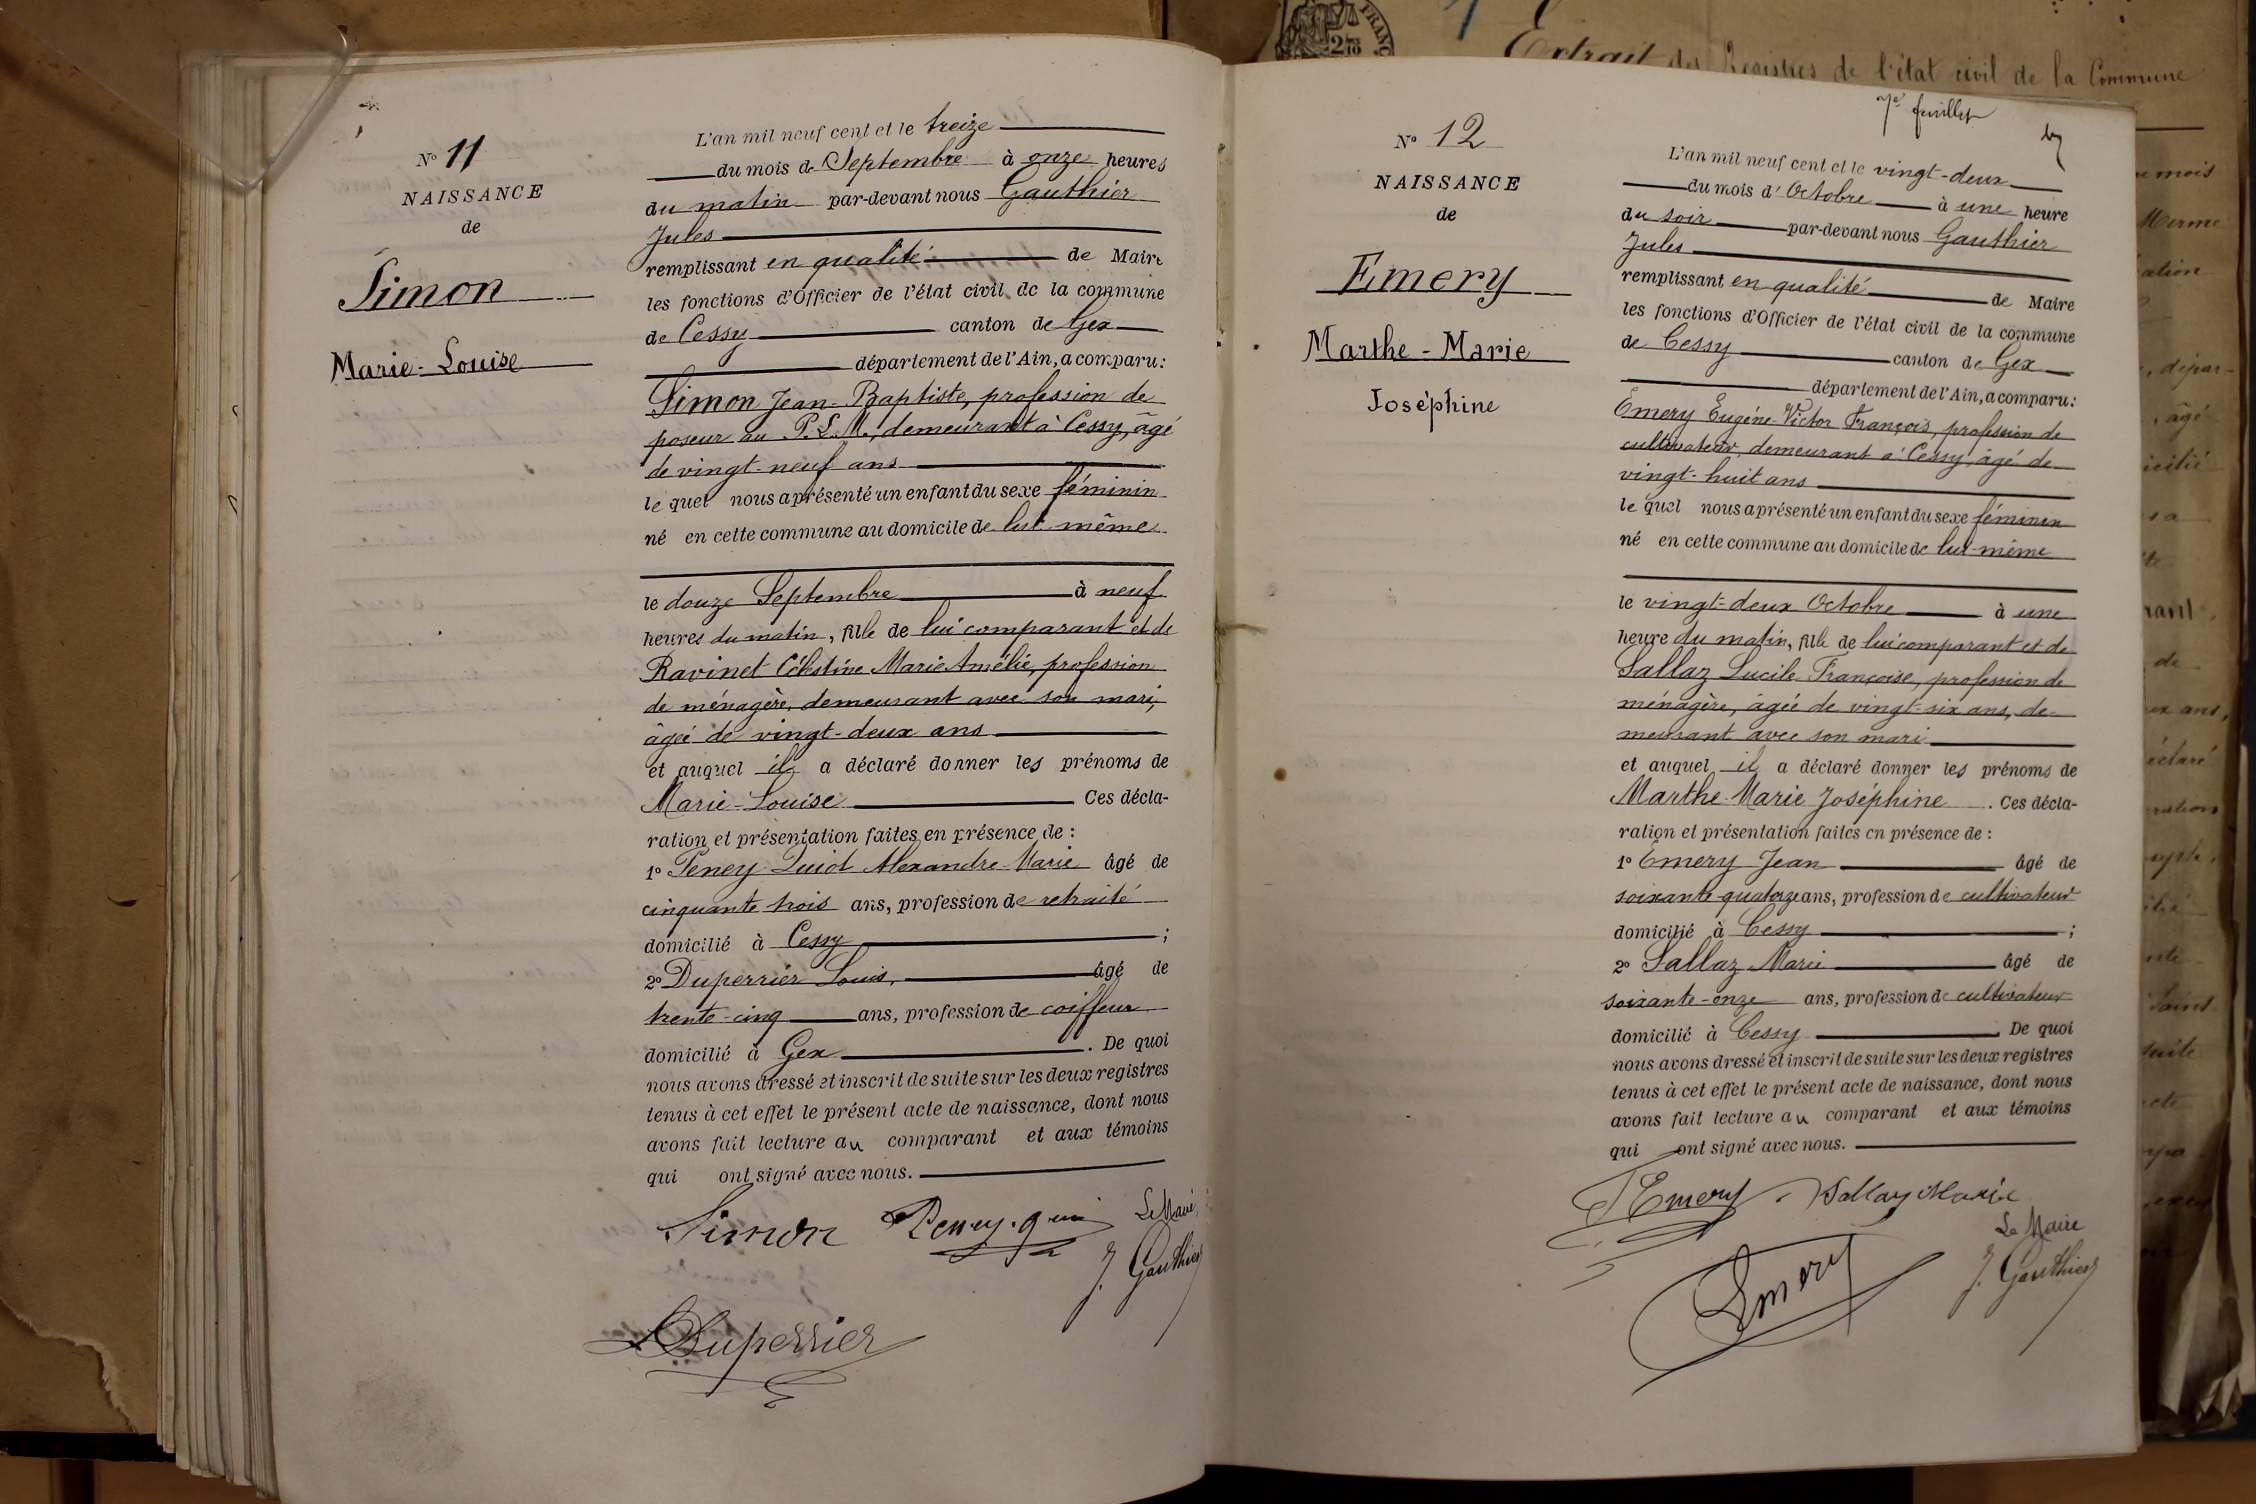 FRANC
2/10
Extrait des Registres de l'état civil de la Commune
N° 11
NAISSANCE
de
Simon
Marie-Louise
L'an mil neuf cent et le treize
du mois de Septembre à onze heures
du matin par-devant nous Gauthier
Jules
remplissant en qualité de Maire
les fonctions d'Officier de l'état civil de la commune
de Cessy canton de Gex
département de l'Ain, a comparu:
Simon Jean-Baptiste, profession de
poseur au P.L.M., demeurant à Cessy, âgé
de vingt-neuf ans
lequel nous a présenté un enfant du sexe féminin
né en cette commune au domicile de lui-même
le douze Septembre à neuf
heures du matin, fille de lui comparant et de
Ravinet Célestine Marie Amélie, profession
de ménagère, demeurant avec son mari,
âgée de vingt-deux ans
et auquel il a déclaré donner les prénoms de
Marie-Louise Ces décla-
ration et présentation faites en présence de :
1° Peney-Quiot Alexandre-Marie âgé de
cinquante trois ans, profession de retraité
domicilié à Cessy ;
2° Duperrier Louis, âgé de
trente-cinq ans, profession de coiffeur
domicilié à Gex . De quoi
nous avons dressé et inscrit de suite sur les deux registres
tenus à cet effet le présent acte de naissance, dont nous
avons fait lecture au comparant et aux témoins
qui ont signé avec nous.
Simon Le Maire
J. Gauthier
Duperrier
7e feuillet
N° 12
NAISSANCE
de
Emery
Marthe-Marie
Joséphine
L'an mil neuf cent et le vingt-deux
du mois d'Octobre à une heure
du soir par-devant nous Gauthier
Jules
remplissant en qualité de Maire
les fonctions d'Officier de l'état civil de la commune
de Cessy canton de Gex
département de l'Ain, a comparu:
Emery Eugène-Victor François, profession de
cultivateur, demeurant à Cessy, âgé de
vingt-huit ans
lequel nous a présenté un enfant du sexe féminin
né en cette commune au domicile de lui-même
le vingt-deux Octobre à une
heure du matin, fille de lui comparant et de
Sallaz Lucile Françoise, profession de
ménagère, âgée de vingt-six ans, de-
meurant avec son mari
et auquel il a déclaré donner les prénoms de
Marthe-Marie Joséphine . Ces décla-
ration et présentation faites en présence de :
1° Emery Jean âgé de
soixante-quatorze ans, profession de cultivateur
domicilié à Cessy ;
2° Sallaz Marie âgé de
soixante-onze ans, profession de cultivateur
domicilié à Cessy . De quoi
nous avons dressé et inscrit de suite sur les deux registres
tenus à cet effet le présent acte de naissance, dont nous
avons fait lecture au comparant et aux témoins
qui ont signé avec nous.
Emery Sallaz Marie
Le Maire
J. Gauthier
Emery